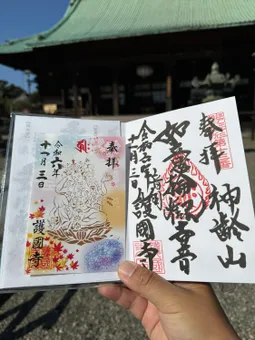 奉拝
神齢山
如意輪観世音
令和六年
十一月三日
護國寺
奉拝
令和六年
十一月三日
護國寺